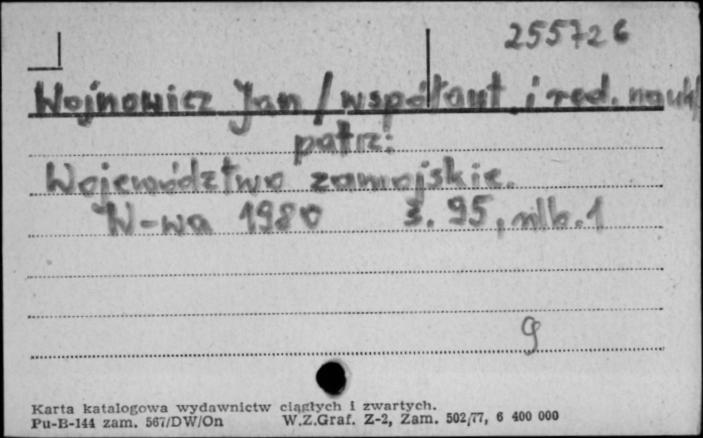 255726
Wojnowicz Jan / współaut. i red. nauk/
patrz:
Województwo zamojskie.
W-wa 1980 s. 95, nlb. 1
g
Karta katalogowa wydawnictw ciągłych i zwartych.
Pu-B-144 zam. 567/DW/On W.Z.Graf. Z-2, Zam. 502/77, 6 400 000